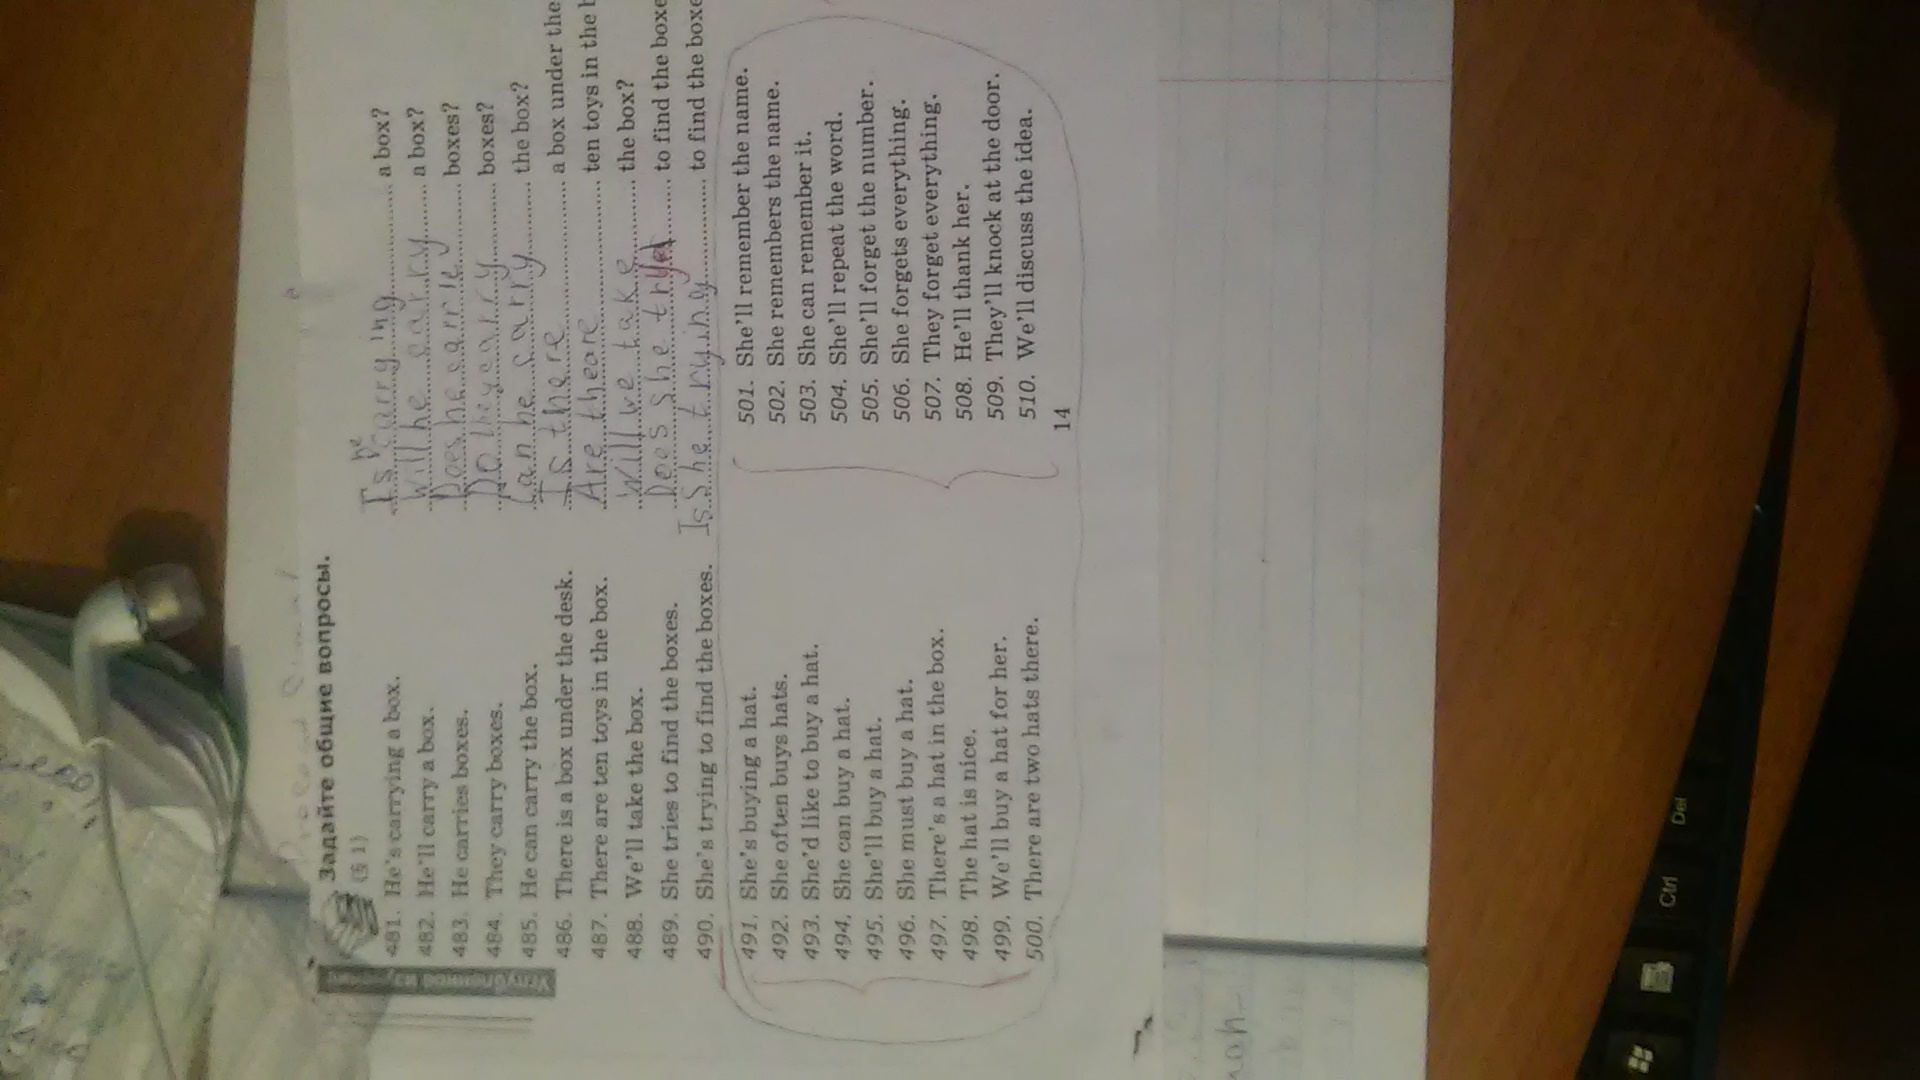 Задайте общие вопросы.
(§ 1)
Углубленное изучение
481. He's carrying a box. Is he carrying a box?
482. He'll carry a box. Will he carry a box?
483. He carries boxes. Does he carrie boxes?
484. They carry boxes. Do they carry boxes?
485. He can carry the box. Can he carry the box?
486. There is a box under the desk. Is there a box under the
487. There are ten toys in the box. Are theare ten toys in the b
488. We'll take the box. Will we take the box?
489. She tries to find the boxes. Does she try to find the boxe
490. She's trying to find the boxes. Is she trying to find the boxe
491. She's buying a hat.
492. She often buys hats.
493. She'd like to buy a hat.
494. She can buy a hat.
495. She'll buy a hat.
496. She must buy a hat.
497. There's a hat in the box.
498. The hat is nice.
499. We'll buy a hat for her.
500. There are two hats there.
501. She'll remember the name.
502. She remembers the name.
503. She can remember it.
504. She'll repeat the word.
505. She'll forget the number.
506. She forgets everything.
507. They forget everything.
508. He'll thank her.
509. They'll knock at the door.
510. We'll discuss the idea.
14
Ctrl
Del